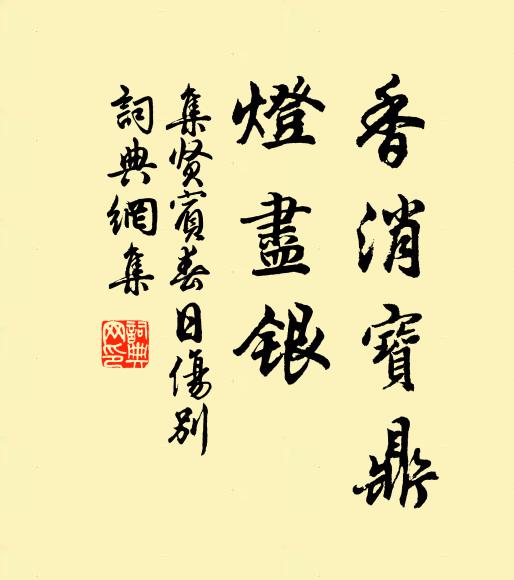 香消寶鼎
燈盡銀
集贤賓春日傷別
詞典網集
詞典網印